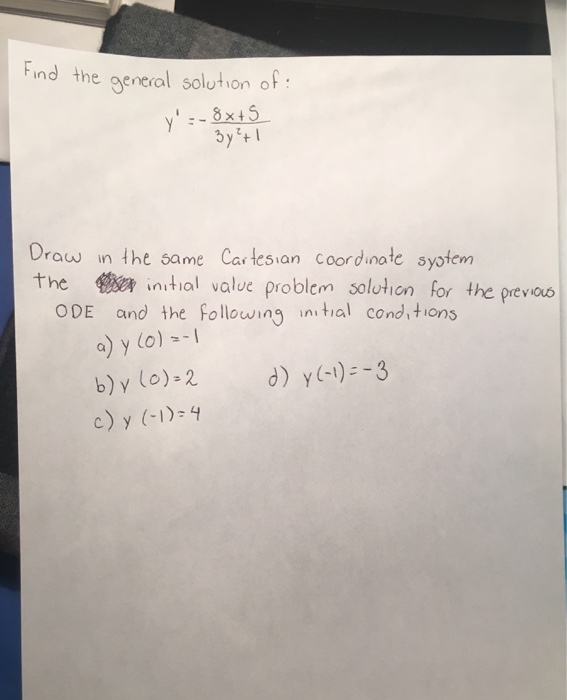 Find the general solution of:
y' = - 8x+5 / 3y²+1
Draw in the same Cartesian coordinate system
the initial value problem solution for the previous
ODE and the following initial conditions
a) y (0) = -1
b) y (0) = 2 d) y (-1) = -3
c) y (-1) = 4